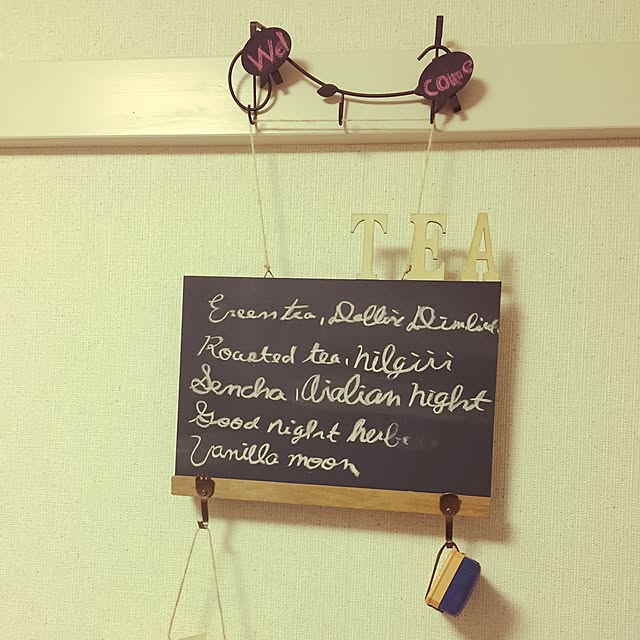 Wel
come
TEA
Green tea,
Roasted tea, nilgiri
Sencha, Arabian night
Good night herb
Vanilla moon